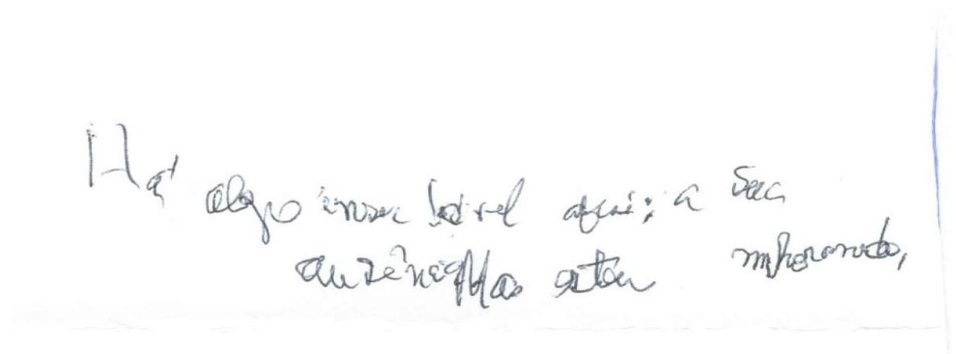 Há algo insuportável aqui: a sua
ausência. Mas estou melhorando,